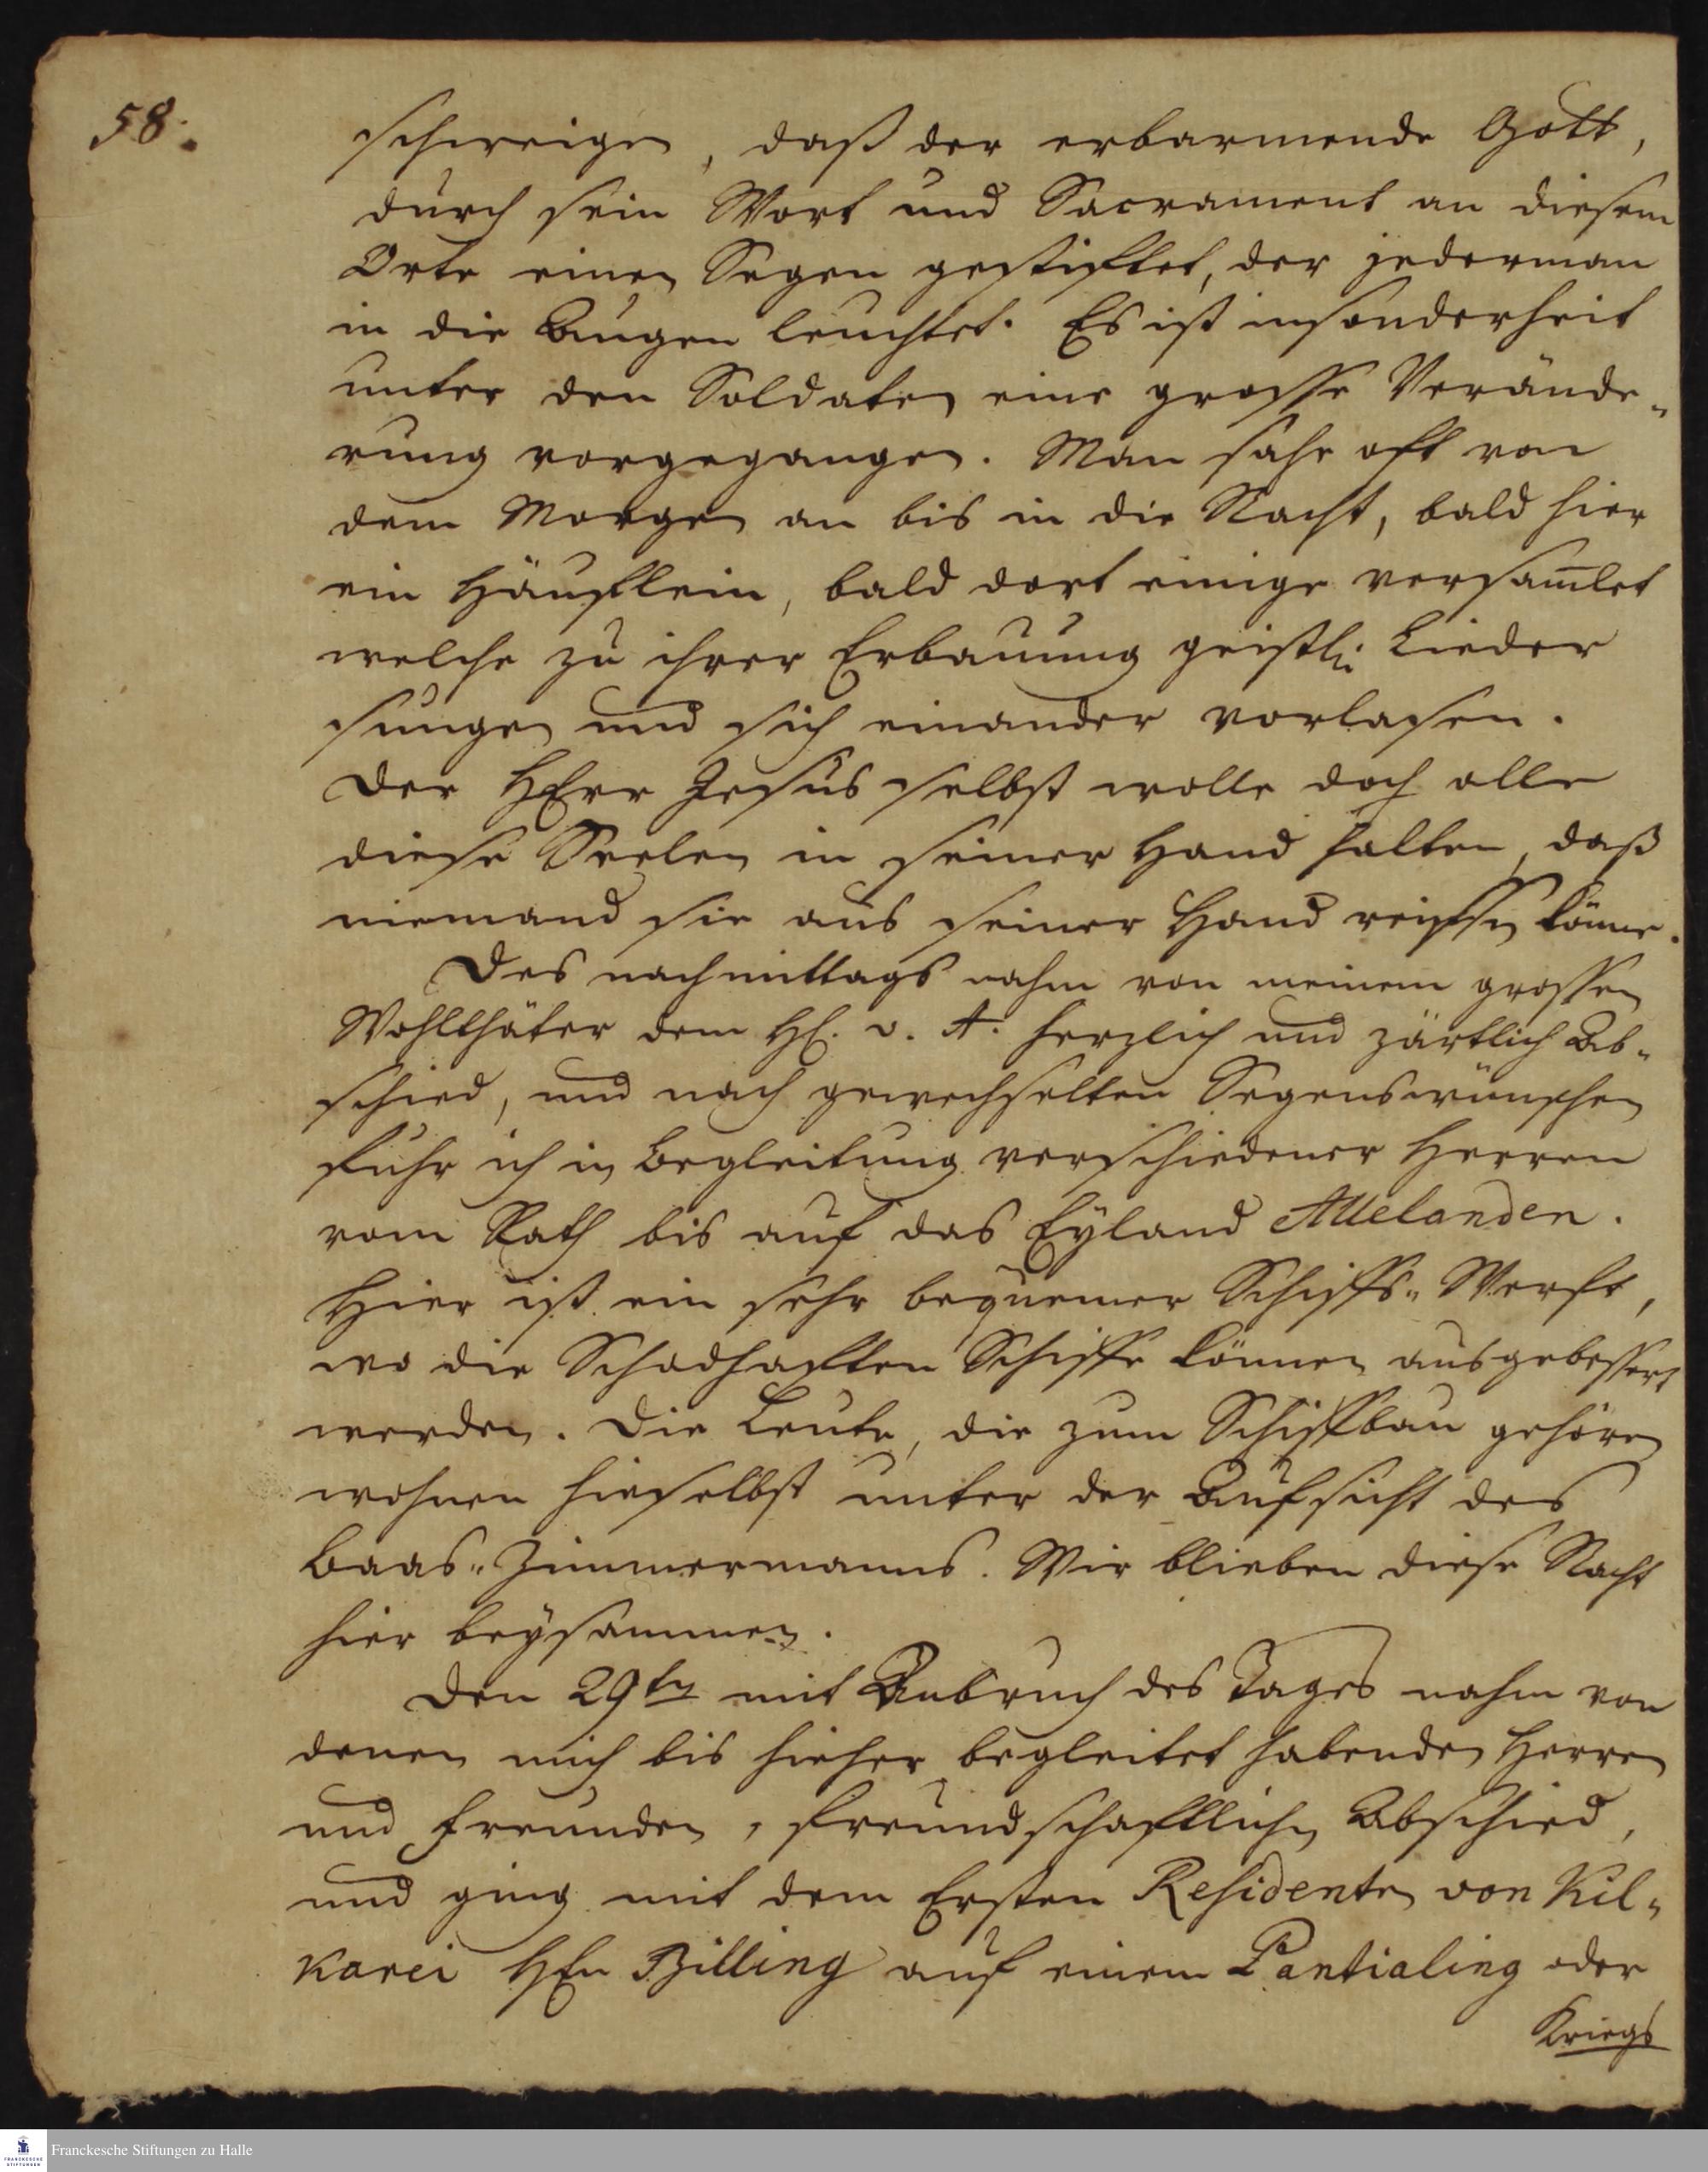 58.
schweigen, daß der erbarmende Gott,
durch sein Wort und Sacrament an diesem
Orte einen Segen gestiftet, der jederman
in die Augen leuchtet. Es ist insonderheit
unter den Soldaten eine grosse Verände-
rung vorgegangen. Man sahe oft von
dem Morgen an bis in die Nacht, bald hier
ein Häuflein, bald dort einige versam̅let
welche zu ihrer Erbauung geistli: Lieder
sungen und sich einander vorlasen.
Der HErr Jesus selbst wolle doch alle
diese Seelen in seiner Hand halten, daß
niemand sie aus seiner Hand reissen könne.
Des nachmittags nahm von meinem grossen
Wohlthäter dem H. v. A. herzlich und zärtlich Ab-
schied, und nach gewechselten Segenswünschen
fuhr ich in Begleitung verschiedener Herren
vom Rath bis auf das Eyland Allelanden.
Hier ist ein sehr bequemer Schiffs-Werft,
wo die Schadhaften Schiffe können ausgebessert
werden. Die Leute, die zum Schiffbau gehören
wohnen hieselbst unter der Aufsicht des
Baas-Zimmermanns. Wir blieben diese Nacht
hier beysammen.
Den 29ten mit Anbruch des Tages nahm von
denen mich bis hieher begleitet habenden Herren
und Freunden, freundschaftlichen Abschied,
und ging mit dem Ersten Residenten von Kil-
karei HEn Billing auf einem Pantialing oder
Kriegs
Franckesche Stiftungen zu Halle
FRANCKESCHE STIFTUNGEN